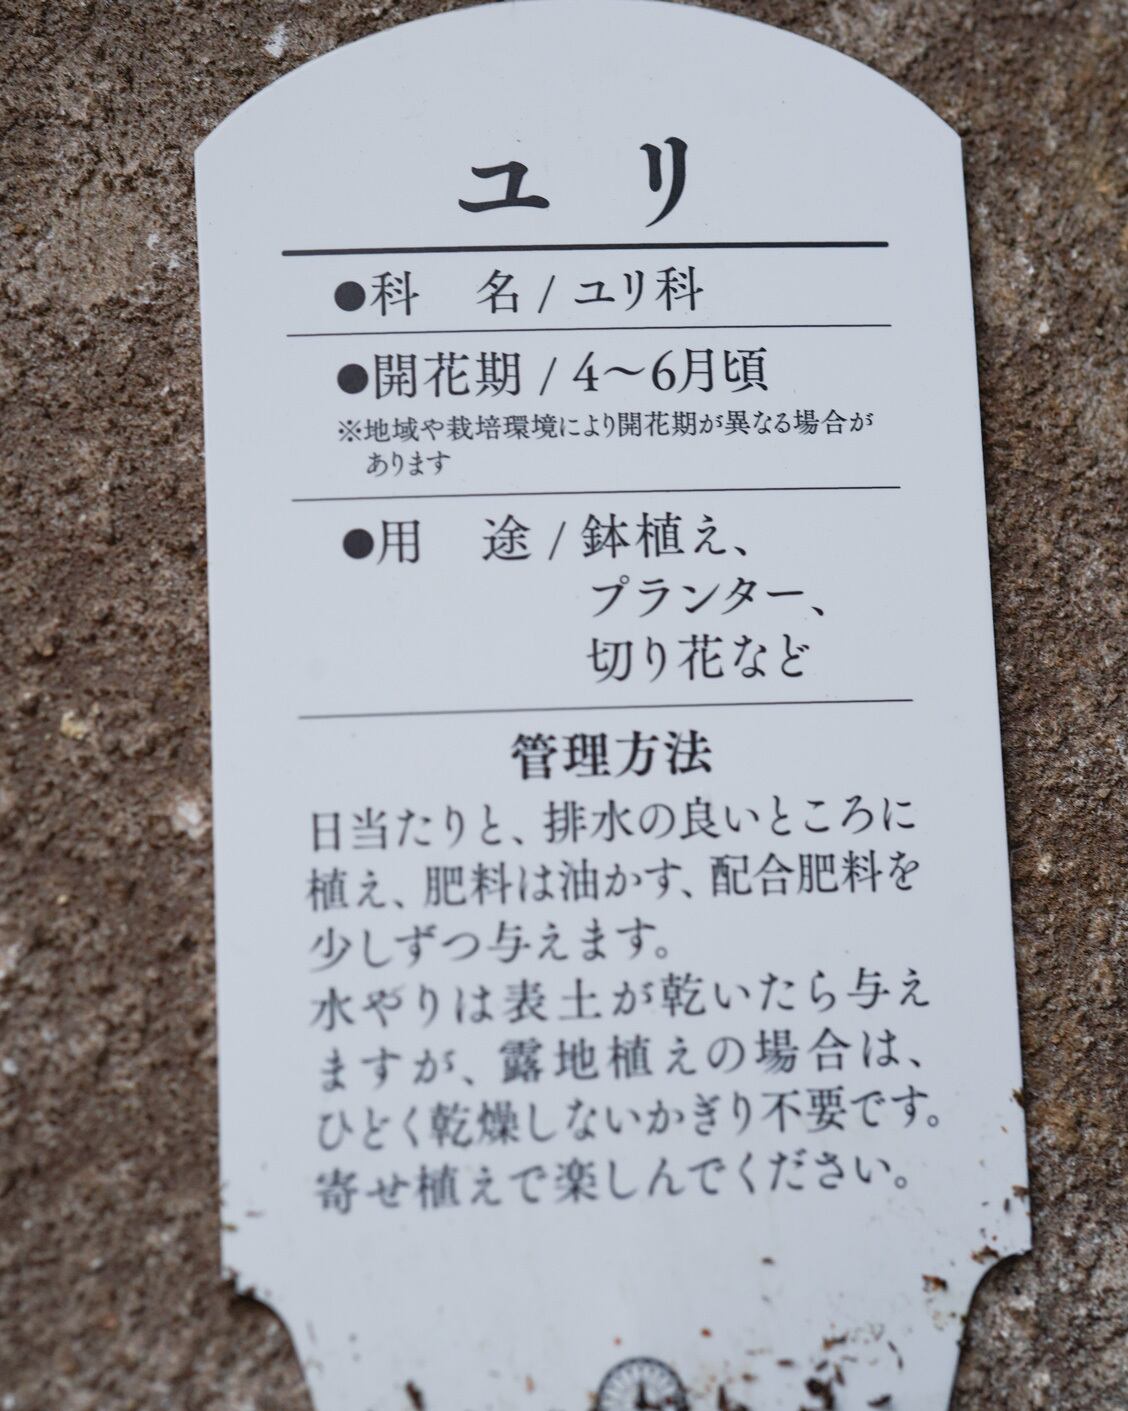 ユリ
●科　名/ユリ科
●開花期/4～6月頃
※地域や栽培環境により開花期が異なる場合が
あります
●用　途/鉢植え、
プランター、
切り花など
管理方法
日当たりと、排水の良いところに
植え、肥料は油かす、配合肥料を
少しずつ与えます。
水やりは表土が乾いたら与え
ますが、露地植えの場合は、
ひどく乾燥しないかぎり不要です。
寄せ植えで楽しんでください。